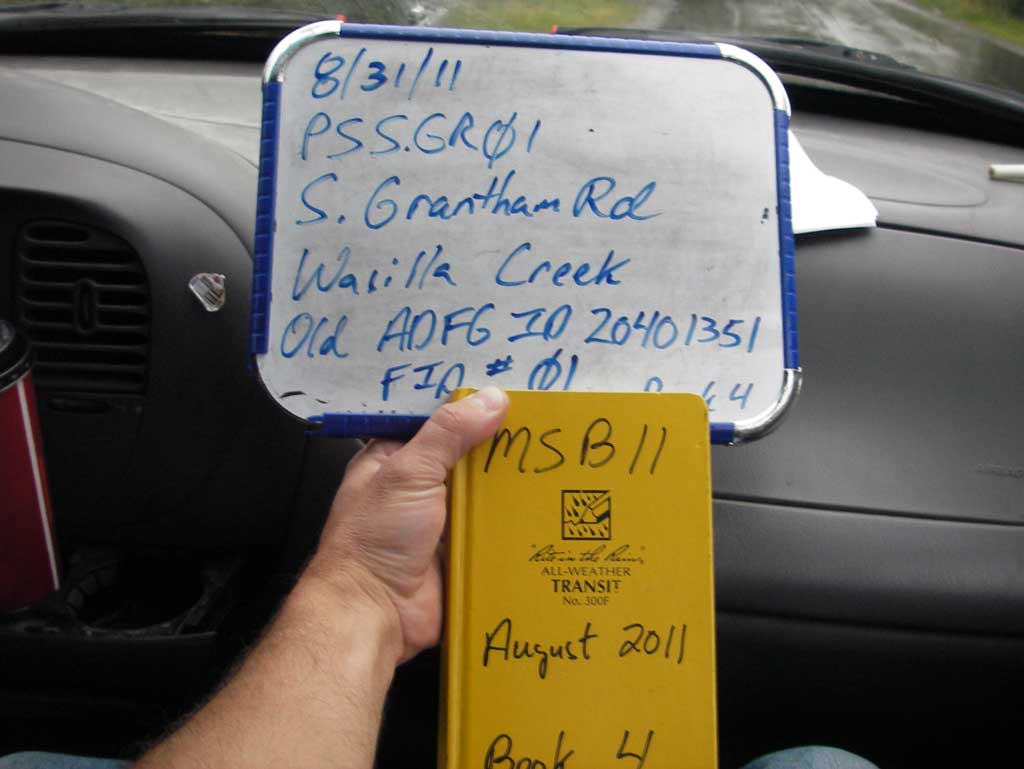 8/31/11
PSS.GRØ1
S. Grantham Rd
Wasilla Creek
Old ADFG ID 20401351
FID # Ø1 Book 4
MSB11
"Rite in the Rain"
ALL-WEATHER
TRANSIT
No. 300F
August 2011
Book 4